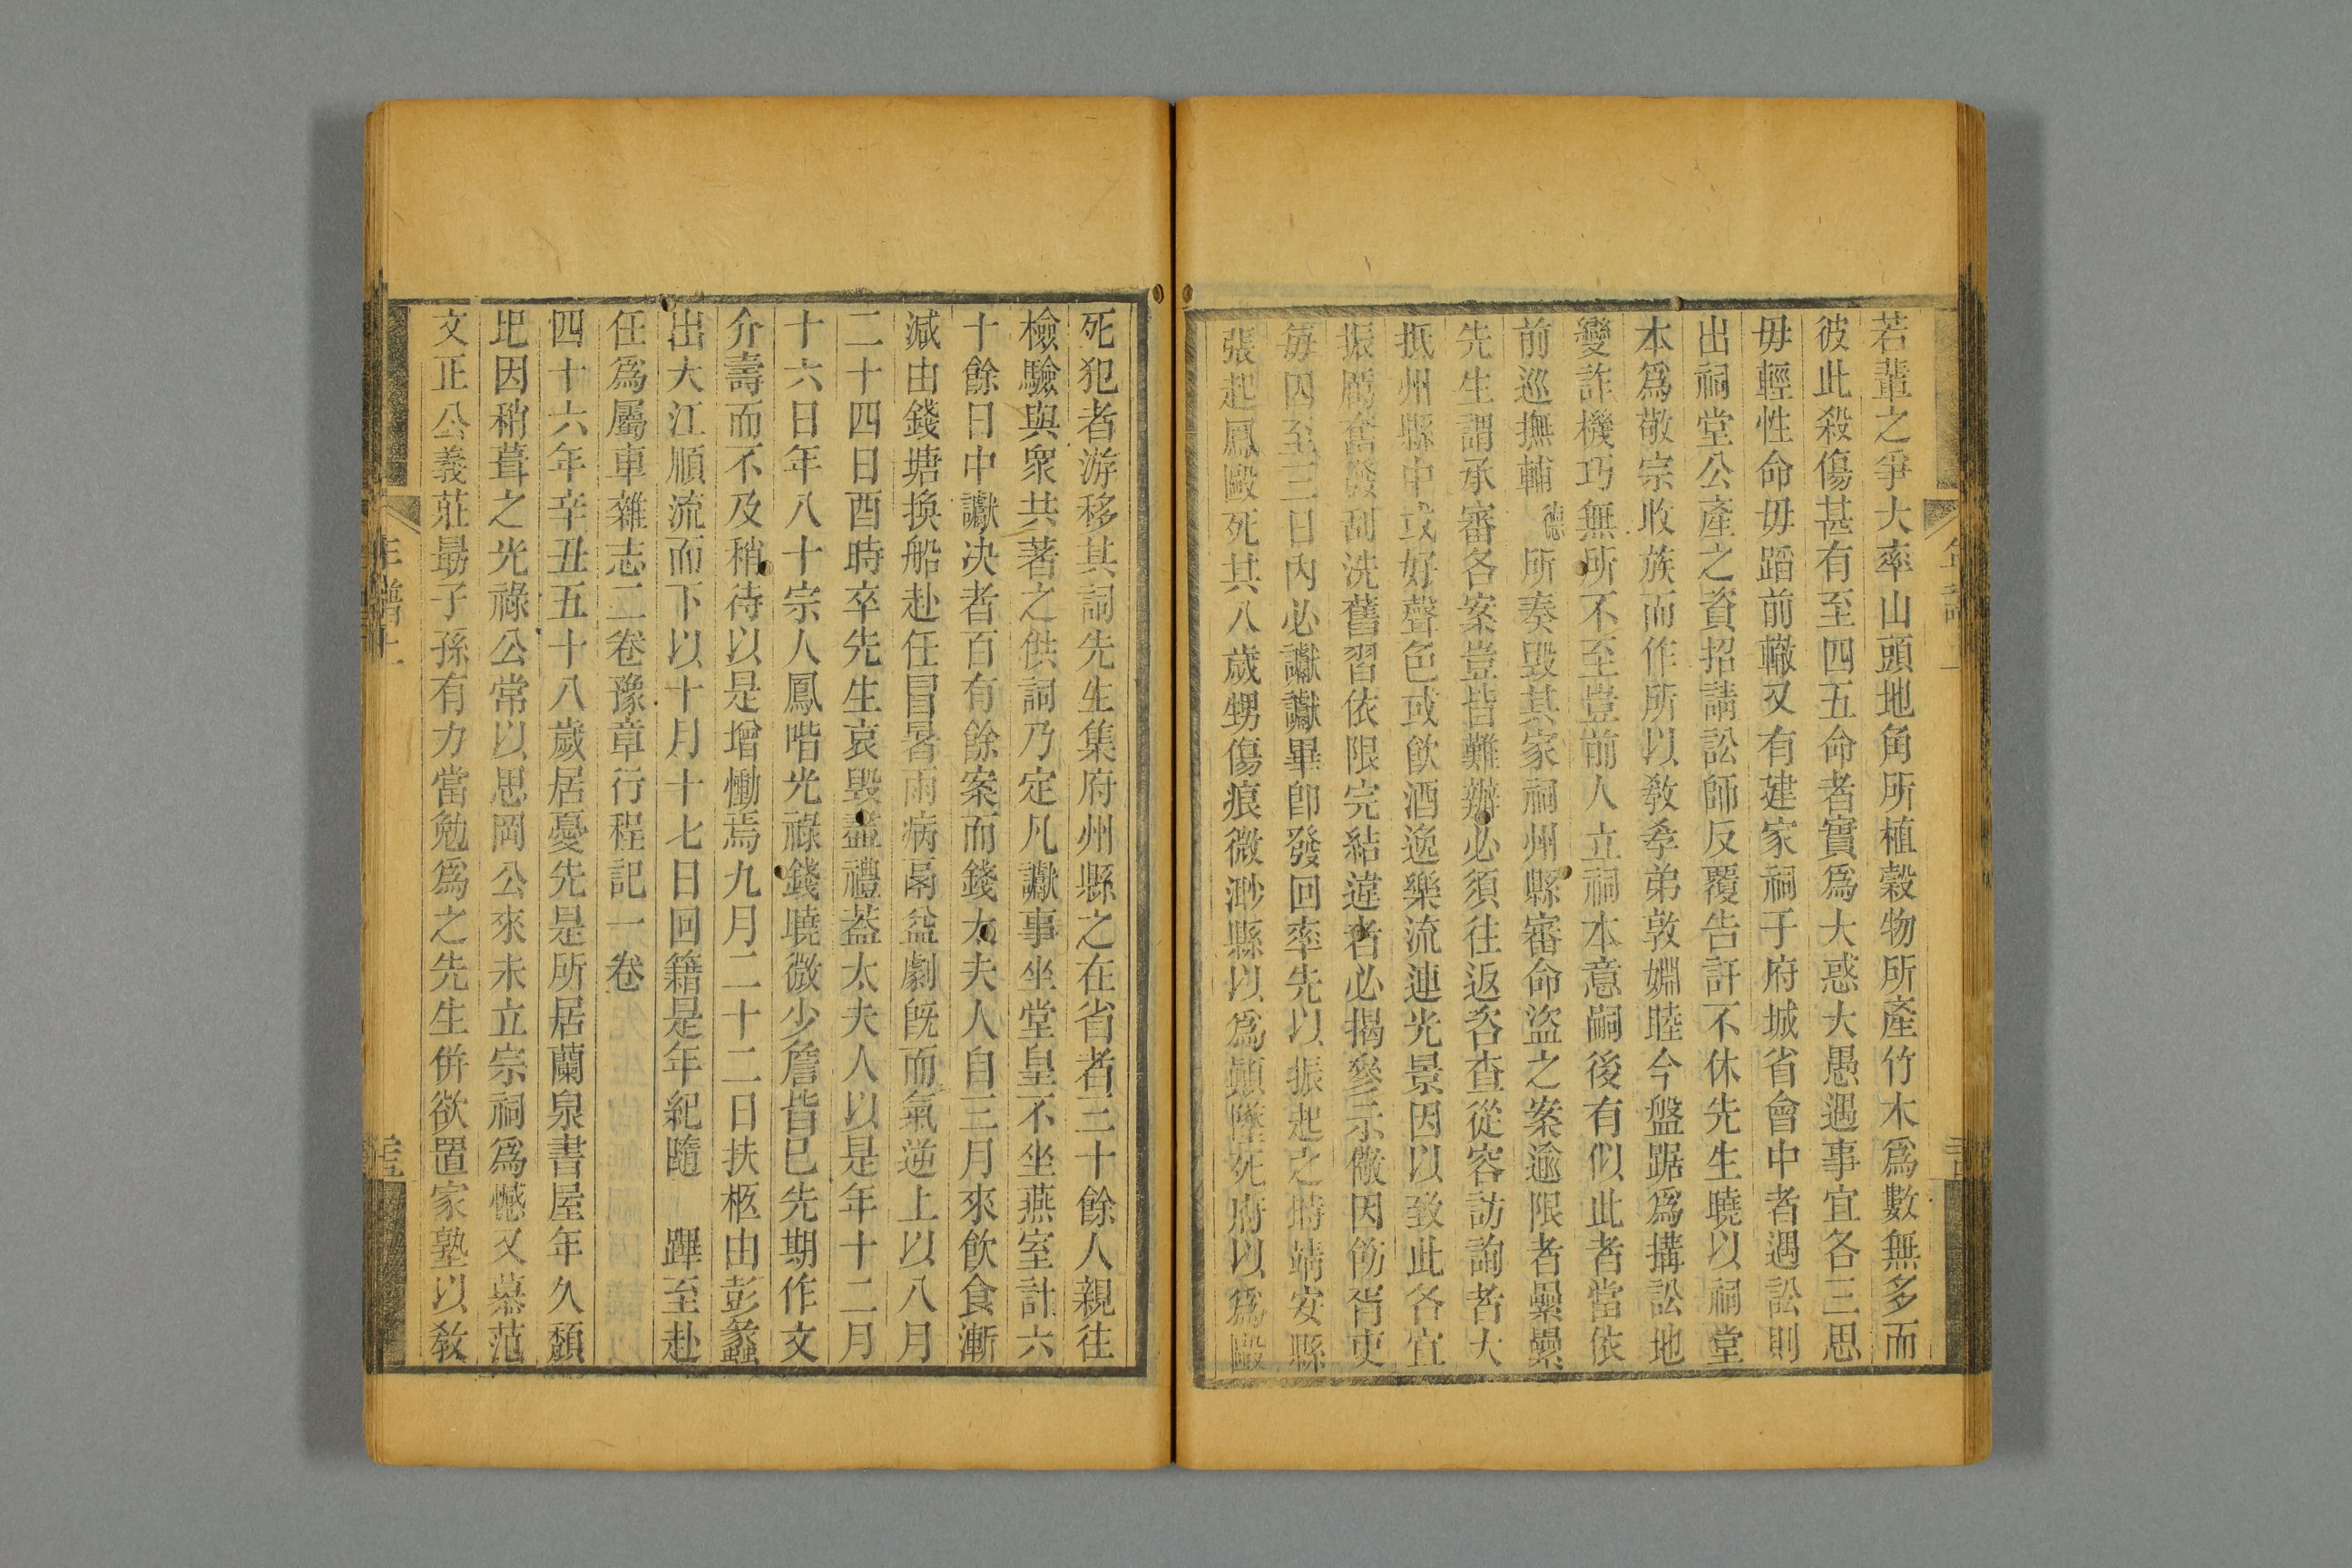 若輩之爭大率山頭地角所植穀物所產竹木爲數無多而
彼此殺傷甚有至四五命者實爲大惑大愚遇事宜各三思
毋輕性命毋蹈前轍又有建家祠于府城省會中者遇訟則
出祠堂公產之資招請訟師反覆告訐不休先生曉以祠堂
本爲敬宗收族而作所以敎孝弟敦婣睦今盤踞爲搆訟地
變詐機巧無所不至豈前人立祠本意嗣後有似此者當依
前巡撫輔德所奏毀其家祠州縣審命盜之案逾限者纍纍
先生謂承審各案豈皆難辦必須往返咨查從容訪詢者大
抵州縣中或好聲色或飮酒逸樂流連光景因以致此各宜
振厲奮發刮洗舊習依限完結違者必揭參示儆因飭胥吏
每囚至三日內必讞讞畢卽發回率先以振起之時靖安縣
張起鳳毆死其八歲甥傷痕微渺縣以爲顚墜死府以爲毆
死犯者游移其詞先生集府州縣之在省者三十餘人親往
檢驗與衆共著之供詞乃定凡讞事坐堂皇不坐燕室計六
十餘日中讞決者百有餘案而錢太夫人自三月來飮食漸
減由錢塘換船赴任冒暑雨病鬲益劇旣而氣逆上以八月
二十四日酉時卒先生哀毀盡禮葢太夫人以是年十二月
十六日年八十宗人鳳喈光祿錢曉徵少詹皆已先期作文
介壽而不及稍待以是增慟焉九月二十二日扶柩由彭蠡
出大江順流而下以十月十七日回籍是年紀隨　蹕至赴
任爲屬車雜志二卷豫章行程記一卷
四十六年辛丑五十八歲居憂先是所居蘭泉書屋年久頹
圯因稍葺之光祿公常以思岡公來未立宗祠爲憾又慕范
文正公義莊勗子孫有力當勉爲之先生併欲置家塾以敎
年譜上